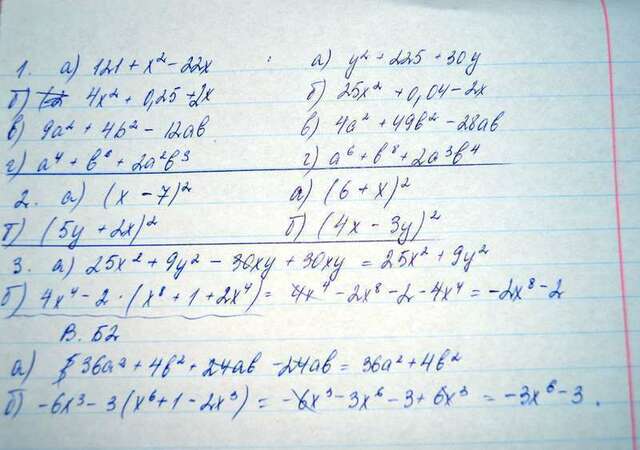 1. а) 121 + x² - 22x а) y² + 225 + 30y
б) 4x² + 0,25 + 2x б) 25x² + 0,04 - 2x
в) 9a² + 4b² - 12ab в) 4a² + 49b² - 28ab
г) a⁴ + b⁶ + 2a²b³ г) a⁶ + b⁸ + 2a³b⁴
2. а) (x - 7)² а) (6 + x)²
б) (5y + 2x)² б) (4x - 3y)²
3. а) 25x² + 9y² - 30xy + 30xy = 25x² + 9y²
б) 4x⁴ - 2 · (x⁸ + 1 + 2x⁴) = 4x⁴ - 2x⁸ - 2 - 4x⁴ = -2x⁸ - 2
В. Б2
а) 36a² + 4b² + 24ab - 24ab = 36a² + 4b²
б) -6x³ - 3(x⁶ + 1 - 2x³) = -6x³ - 3x⁶ - 3 + 6x³ = -3x⁶ - 3.